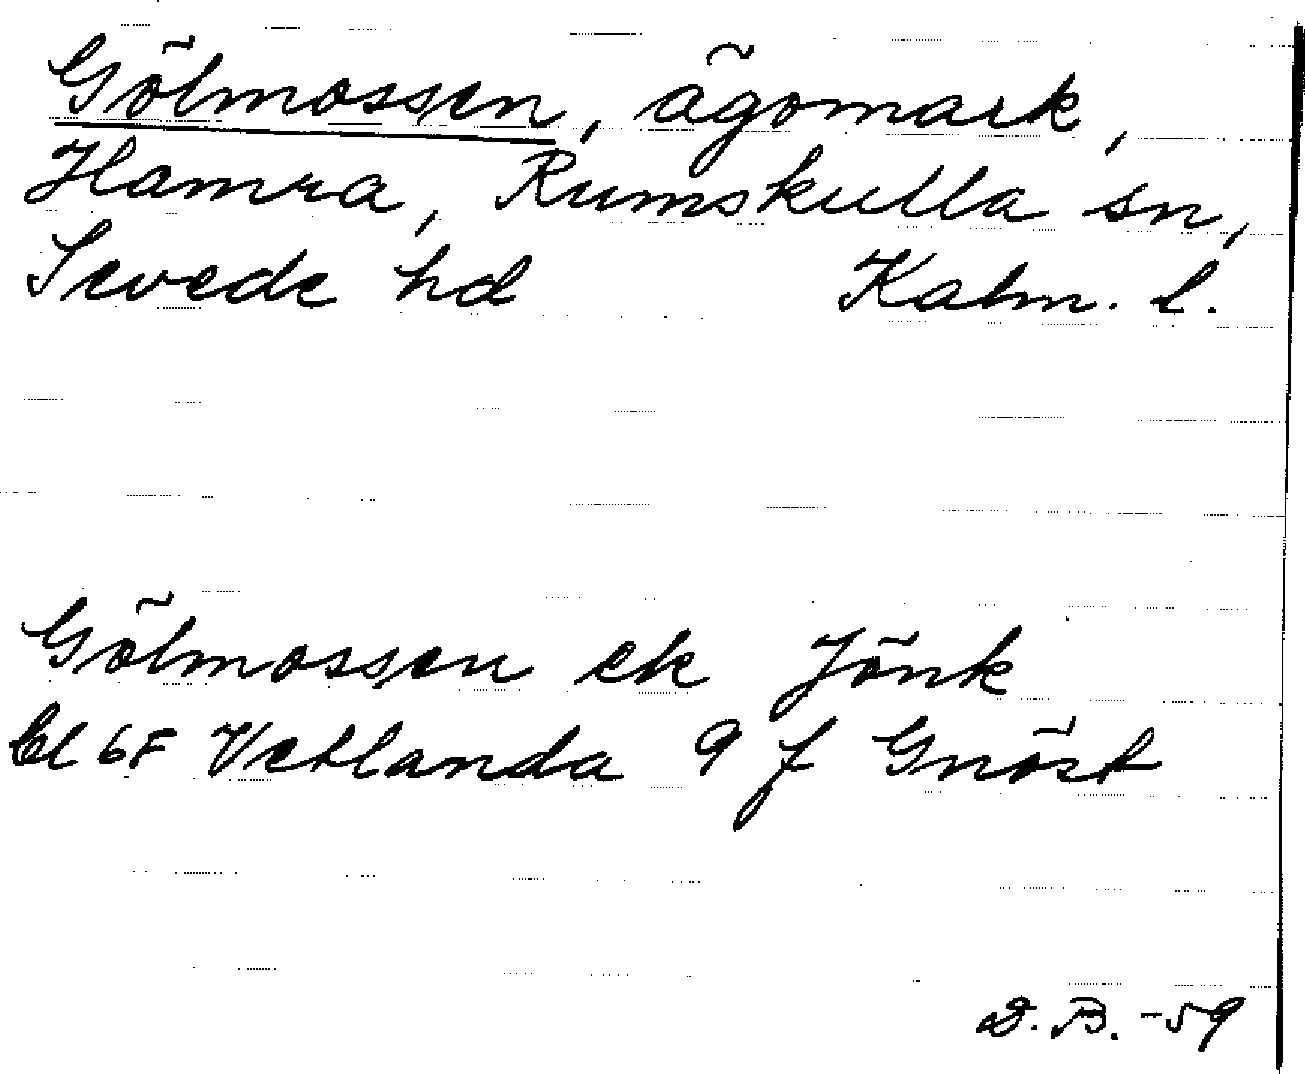 Gölmossen, ägomark,
Hamra, Rumskulla sn,
Sevede hd Kalm. l.
Gölmossen ek Jönk
Bl 6F Vetlanda 9 f Gnöst
D. B. -59